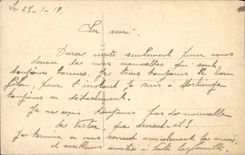 Le 29-1-18.
Cher ami.
Deux mots seulement pour vous
donner de mes nouvelles qui sont
toujours bonnes. Je suis toujours le
filon, pour l'instant je suis à
toujours en détachement.
Je ne vois toujours pas de nouvelles
de Victor que devient-il?
Je termine en vous serrant amicalement les mains
et meilleures amitiés à toute la famille.